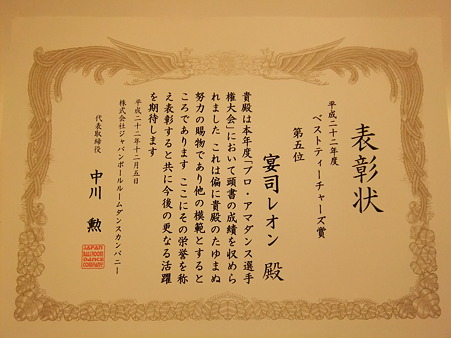 表彰状
平成二十二年度
ベストティーチャーズ賞
第五位
宴司レオン 殿
貴殿は本年度「プロ・アマダンス選手
権大会」において頭書の成績を収めら
れました これは偏に貴殿のたゆまぬ
努力の賜物であり他の模範とすると
ころであります ここにその栄誉を称
え表彰すると共に今後の更なる活躍
を期待します
平成二十二年十二月五日
株式会社ジャパンボールルームダンスカンパニー
代表取締役 中川 勲
JAPAN
BALLROOM
DANCE
COMPANY